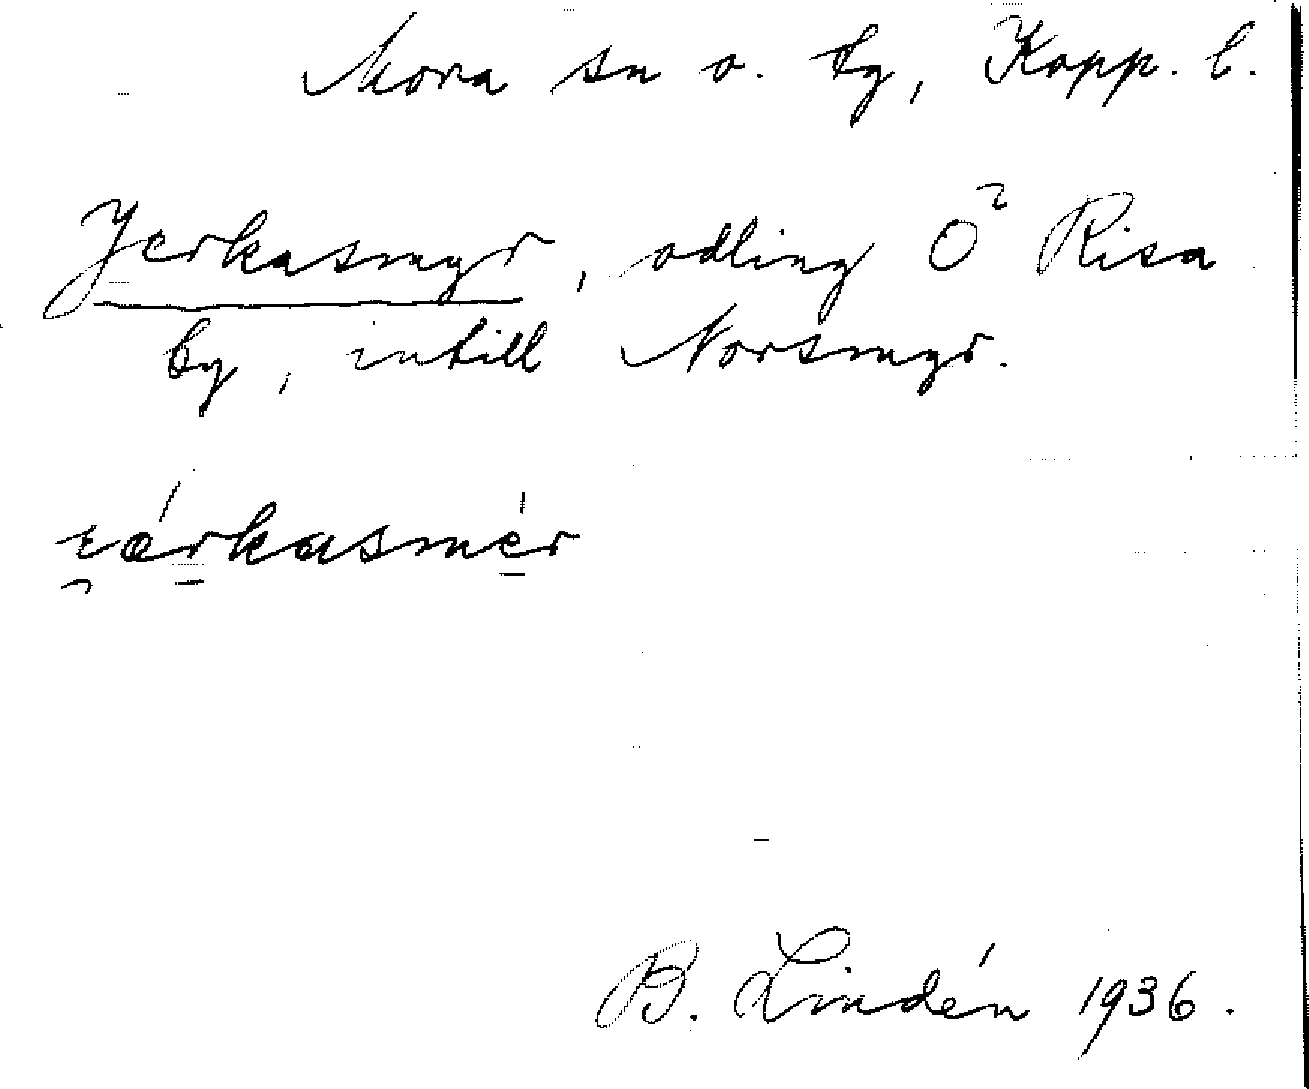 Mora sn o. by, Kopp. l.
Jerkasmyr, odling Ö Risa
by, intill Norsmyr.
B. Lindén 1936.